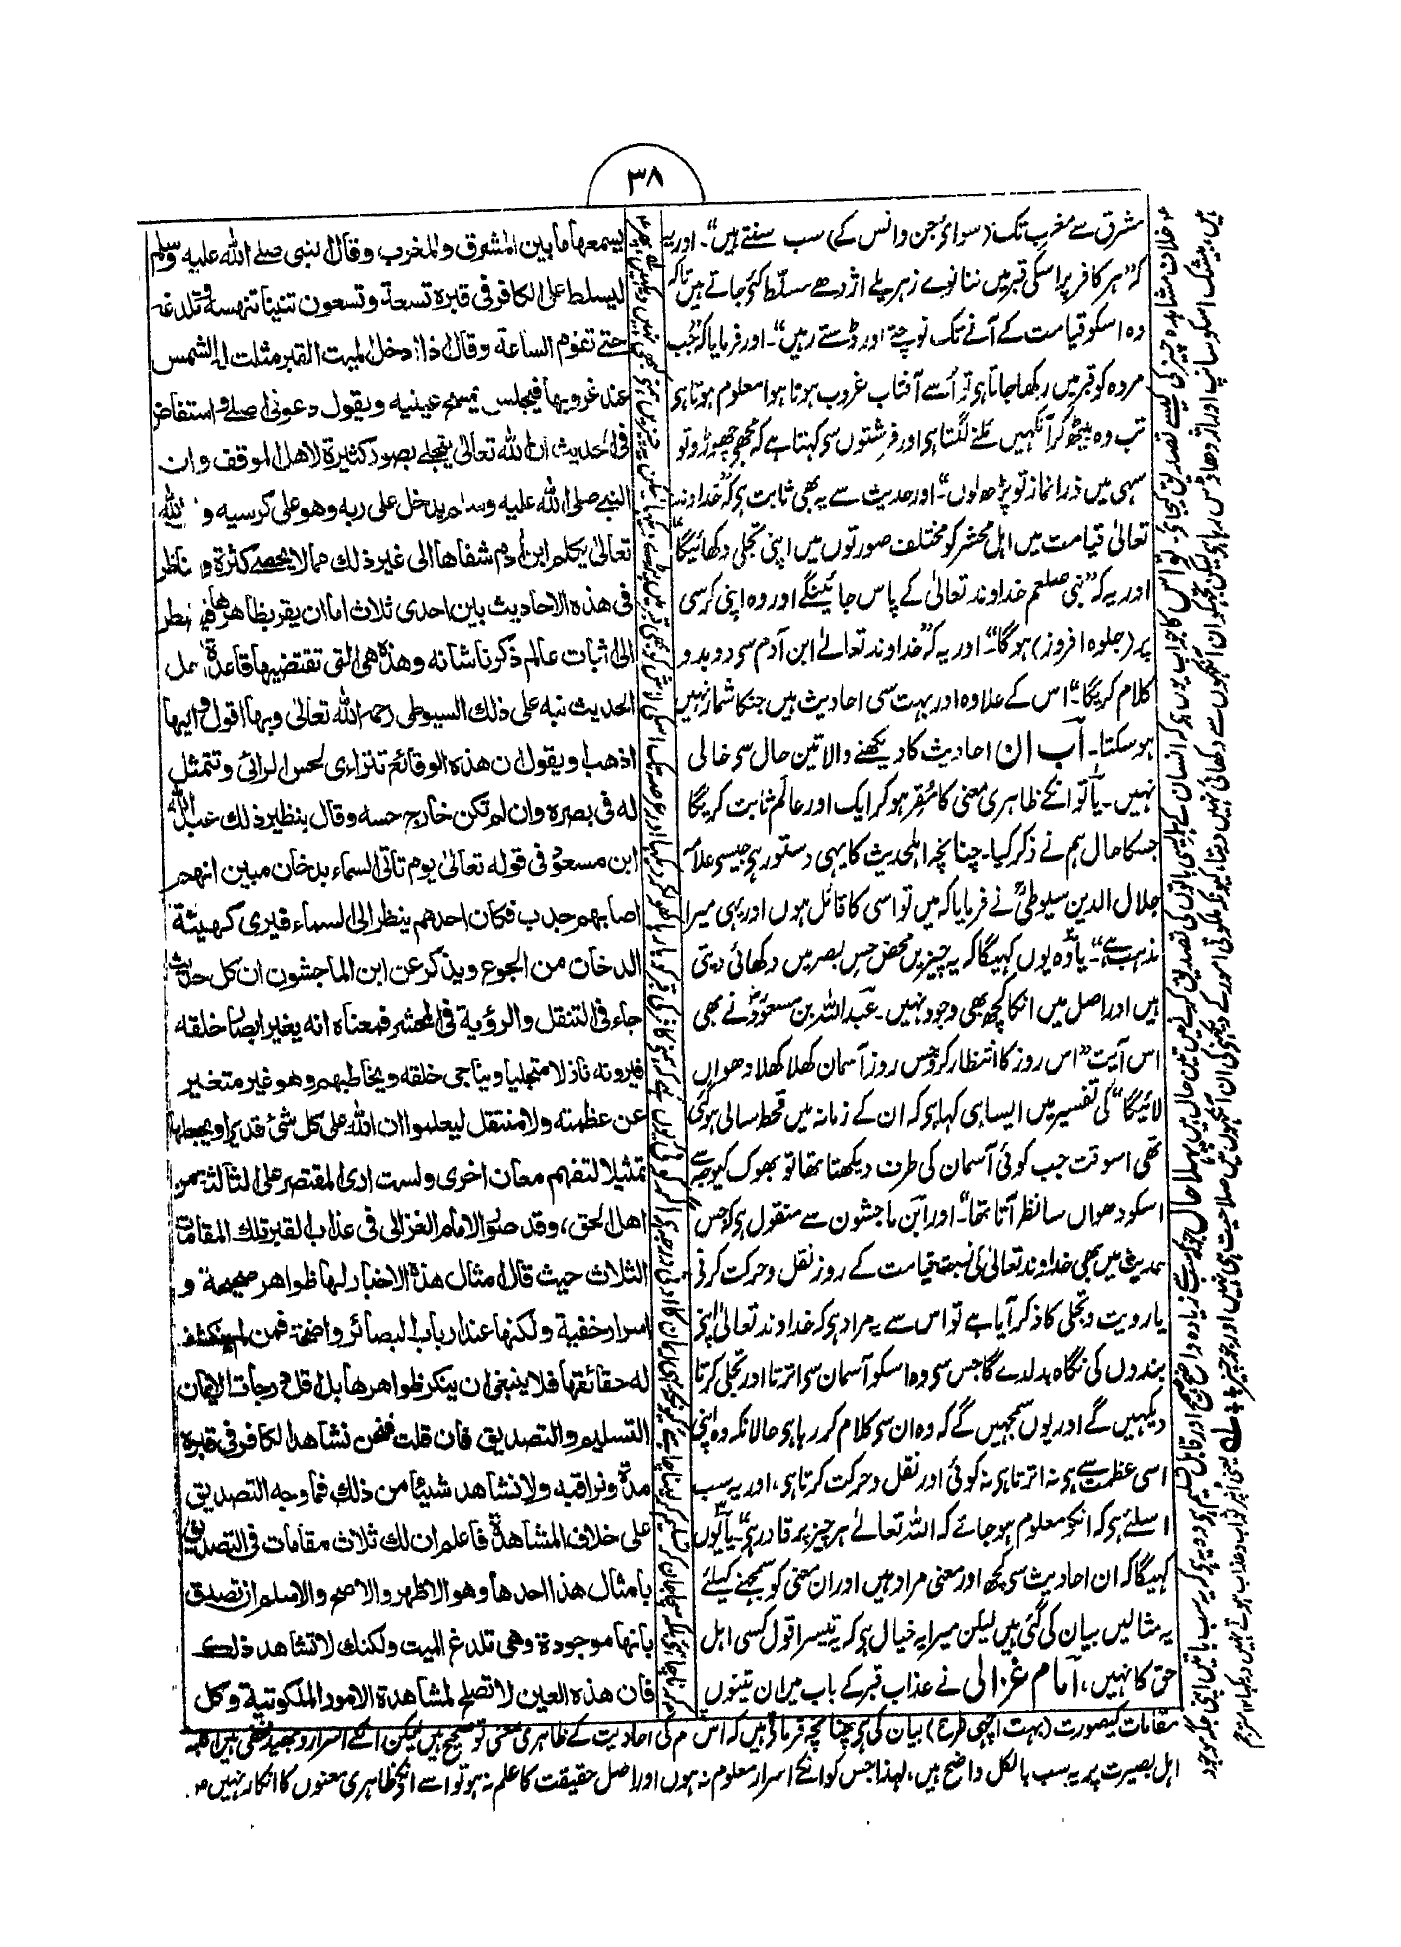 ۳۸
مشرق سے مغرب تک (سوائے جن وانس کے) سب سنتے ہیں"۔ اور یہ
کہ "ہر کافر پر اسکی قبر میں ننانوے زہریلے اژدھے مسلّط کئے جاتے ہیں تاکہ
وہ اسکو قیامت کے آنے تک نوچتے اور ڈستے رہیں"۔ اور فرمایا کہ "جب
مردہ کو قبر میں رکھا جاتا ہی تو اُسے آفتاب غروب ہوتا ہوا معلوم ہوتا ہی
تب وہ بیٹھ کر آنکہیں ملنے لگتا ہی اور فرشتوں سی کہتا ہے کہ مجھے چھوڑو تو
سہی میں ذرا نماز تو پڑھ لوں"۔ اور حدیث سے یہ بھی ثابت ہی کہ "خداوند
تعالیٰ قیامت میں اہل محشر کو مختلف صورتوں میں اپنی تجلی دکھائیگا"
اور یہ کہ "نبی صلعم خداوند تعالیٰ کے پاس جائینگے اور وہ اپنی کرسی
پر (جلوہ افروز) ہوگا"۔ اور یہ کہ "خداوند تعالےٰ ابن آدم سی دو بدو
کلام کریگا"۔ اس کے علاوہ اور بہت سی احادیث ہیں جنکا شمار نہیں
ہوسکتا۔ اب ان احادیث کا دیکھنے والا تین حال سی خالی
نہیں۔ یا تو انکے ظاہری معنی کا مُقِر ہوکر ایک اور عالَم ثابت کریگا
جسکا حال ہم نے ذکر کیا۔ چنانچہ اہلحدیث کا یہی دستور ہی جیسی علامہ
جلال الدین سیوطیؒ نے فرمایا کہ میں تو اسی کا قائل ہوں اور یہی میرا
مذہب ہے"۔ یا وہ یوں کہیگا کہ یہ چیزیں محض حِس بصر میں دکھائی دیتی
ہیں اور اصل میں انکا کچھ بھی وجود نہیں۔ عبد اللہ بن مسعودؓ نے بھی
اس آیت "اس روز کا انتظار کرو جس روز آسمان کھلا کھلا دھواں
لائیگا" کی تفسیر میں ایسا ہی کہا ہی کہ ان کے زمانہ میں قحط سالی ہوگئی
تھی اسوقت جب کوئی آسمان کی طرف دیکھتا تھا تو بھوک کیوجہ سے
اسکو دھواں سا نظر آتا تھا"۔ اور ابن ماجشون سے منقول ہی کہ جس
حدیث میں بھی خداوند تعالیٰ کی نسبت قیامت کے روز نقل و حرکت کرنی
یا رویت و تجلی کا ذکر آیا ہے تو اس سے یہ مراد ہی کہ خداوند تعالیٰ اپنی
بندوں کی نگاہ بدلدے گا جس سی وہ اسکو آسمان سی اترتا اور تجلی کرتا
دیکہیں گے اور یوں سمجہیں گے کہ وہ ان سی کلام کر رہا ہی حالانکہ وہ اپنی
اسی عظمت سے ہی نہ اترتا ہی نہ کوئی اور نقل و حرکت کرتا ہی، اور یہ سب
اسلئے ہی کہ انکو معلوم ہوجائے کہ اللہ تعالےٰ ہر چیز پر قادر ہی"۔ یا یوں
کہیگا کہ ان احادیث سی کچھ اور معنی مراد ہیں اور ان معنی کو سمجہنے کیلئے
یہ مثالیں بیان کی گئی ہیں لیکن میرا یہ خیال ہی کہ یہ تیسرا قول کسی اہل
حق کا نہیں، امام غزالی نے عذاب قبر کے باب میں ان تینوں
مقامات کیصورت (بہت اچھی طرح) بیان کی ہی چنانچہ فرماتی ہیں کہ اس قسم کی احادیث کے ظاہری معنی تو صحیح ہیں لیکن انکے اسرار و بھید مخفی ہیں البتہ
اہل بصیرت پر یہ سب بالکل واضح ہیں، لہذا جس کو انکے اسرار معلوم نہ ہوں اور اصل حقیقت کا علم نہ ہو تو اسے انکے ظاہری معنوں کا انکار نہیں
یسمعها ما بین المشرق والمغرب وقال النبی صلے اللہ علیه وسلم
لیسلط علی الکافر فی قبرہ تسعة وتسعون تنینا تنهسه وتلدغه
حتے تقوم الساعة وقال اذا دخل المیت القبر مثلت له الشمس
عند غروبها فیجلس یمسح عینیه ویقول دعونی اصلے واستفاض
فی الحدیث ان اللہ تعالیٰ یتجلے بصور کثیرة لاهل الموقف وان
النبے صلی اللہ علیه وسلم یدخل علی ربه وهو علی کرسیه و اللہ
تعالیٰ یکلم ابن اٰدم شفاها الی غیر ذلك مما لا یحصے کثرة و ناظر
فی هذہ الاحادیث بین احدی ثلاث اما ان یقر بظاهرها فیضطر
الی اثبات عالم ذکرنا شانه وهذہ هی التی تقتضیها قاعدة اهل
الحدیث نبه علی ذلك السیوطی رحمه اللہ تعالیٰ وبها اقول والیها
اذهب او یقول ان هذہ الوقائع تتراءی لحس الرائی وتتمثل
له فی بصرہ وان لم تکن خارج حسه وقال بنظیر ذلك عبد اللہ
ابن مسعودؓ فی قوله تعالیٰ یوم تاتی السماء بدخان مبین انهم
اصابهم جدب فکان احدهم ینظر الی السماء فیری کهیئة
الدخان من الجوع ویذکر عن ابن الماجشون ان کل حدیث
جاء فی التنقل والرؤیة فی المحشر فمعناہ انه یغیر ابصار خلقه
فیرونه نازلا متجلیا ویناجی خلقه ویخاطبهم وهو غیر متغیر
عن عظمته ولا منتقل لیعلموا ان اللہ علی کل شئ قدیر او یجعلها
تمثیلا لتفهم معان اخری ولست اری المقتصر علی الثالثة من
اهل الحق، وقد صور الامام الغزالی فی عذاب القبر تلك المقامات
الثلاث حیث قال امثال هذہ الاخبار لها ظواهر صحیحة و
اسرار خفیة ولکنها عند ارباب البصائر واضحة فمن لم ینکشف
له حقائقها فلا ینبغی ان ینکر ظواهرها بل اقل درجات الایمان
التسلیم والتصدیق فان قلت فنحن نشاهد الکافر فی قبرہ
مدة ونراقبه ولا نشاهد شیئا من ذلك فما وجه التصدیق
علی خلاف المشاهدة فاعلم ان لك ثلاث مقامات فی التصدیق
بامثال هذا احدها وهو الاظهر والاصح والاسلم ان تصدق
بانها موجودة وهی تلدغ المیت ولکنك لا تشاهد ذلك
فان هذہ العین لا تصلح لمشاهدة الامور الملکوتیة وکل